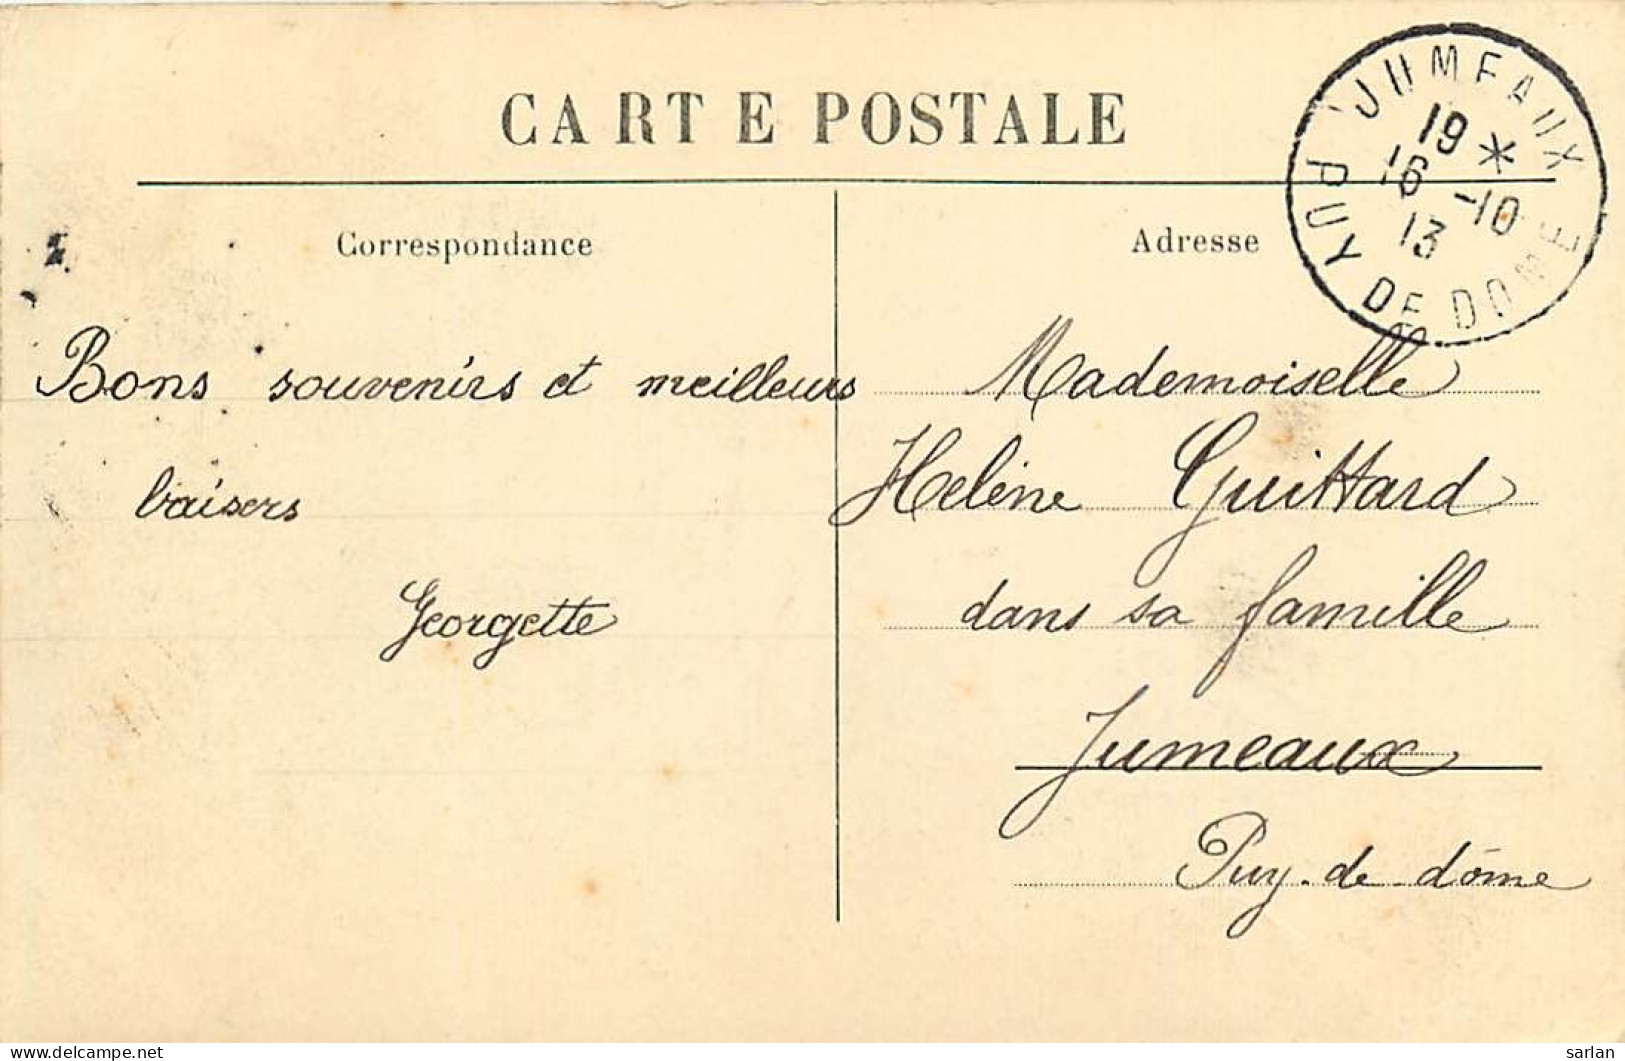 CARTE POSTALE
JUMEAUX
19 *
16 -10
13
PUY DE DOME
Correspondance
Adresse
Bons souvenirs et meilleurs
baisers
Georgette
Mademoiselle
Helène Guittard
dans sa famille
Jumeaux
Puy-de-dôme
www.delcampe.net
sarlan